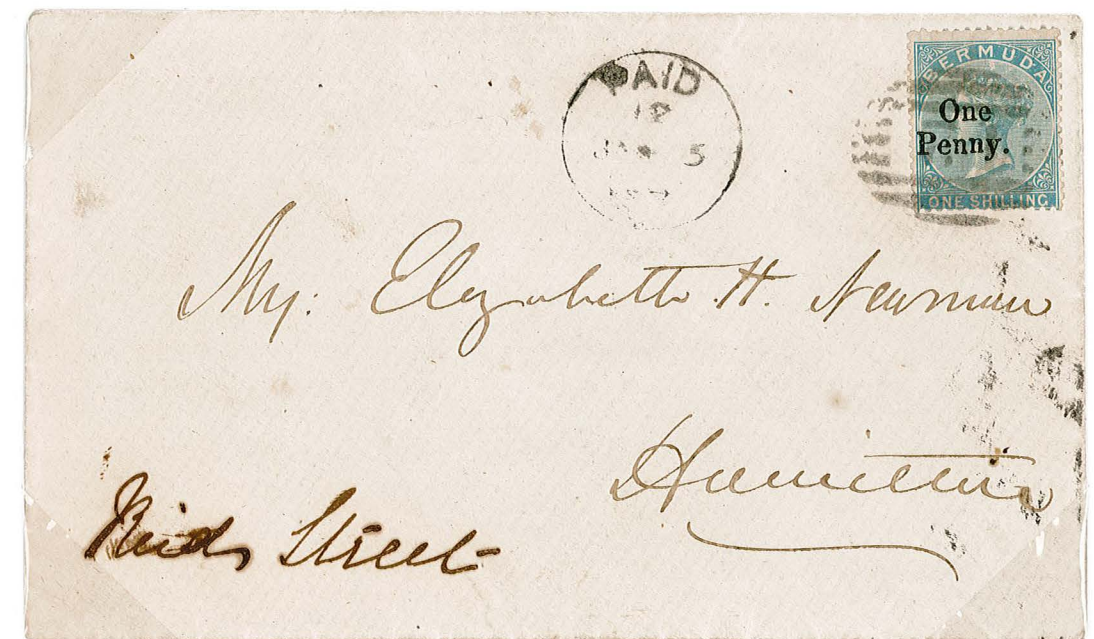 PAID
BERMUDA
One
Penny.
ONE SHILLING
Elizabeth H. Newman
Hamilton
Reids Street